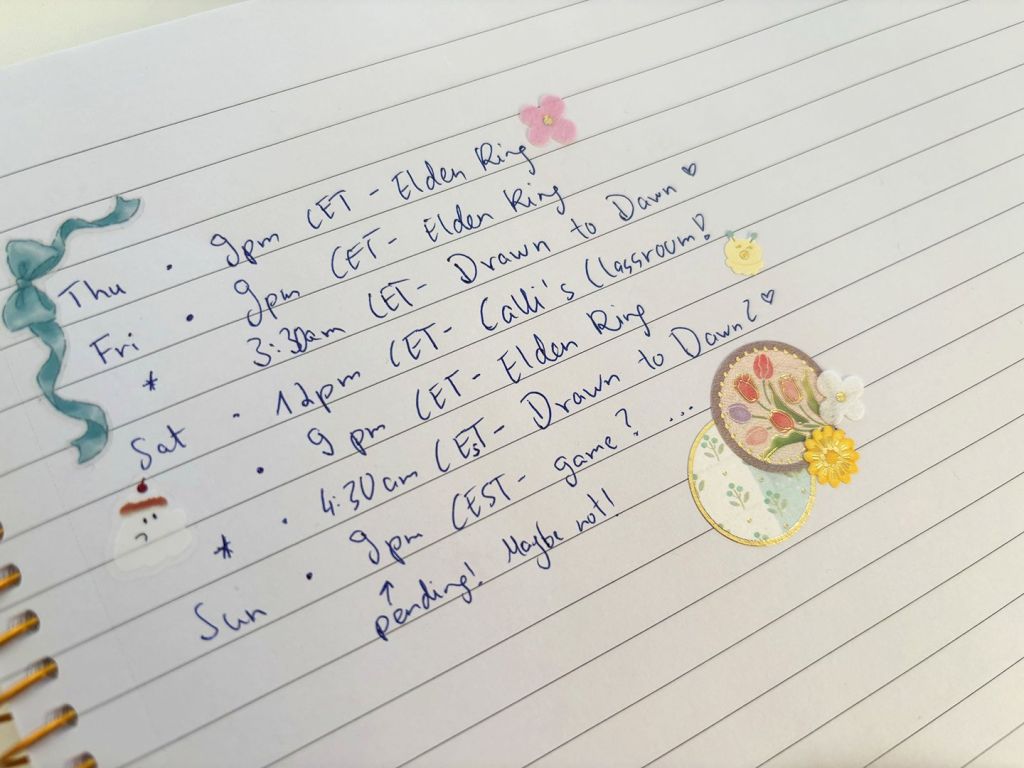 Thu • 9pm CET - Elden Ring
Fri • 9pm CET - Elden Ring
* 3:30am CET - Drawn to Dawn ♡
Sat • 12pm CET - Calli's Classroom!
• 9pm CET - Elden Ring
* • 4:30am CEST - Drawn to Dawn? ♡
Sun • 9pm CEST - game? ...
↑
pending! Maybe not!